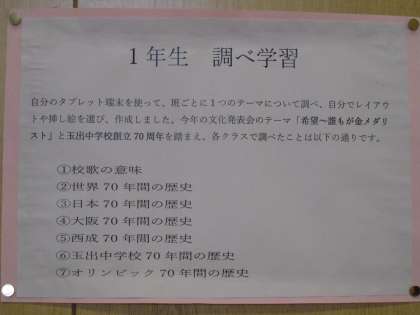 1年生　調べ学習
自分のタブレット端末を使って、班ごとに1つのテーマについて調べ、自分でレイアウ
トや挿し絵を選び、作成しました。今年の文化発表会のテーマ「希望～誰もが金メダリ
スト」と玉出中学校創立70周年を踏まえ、各クラスで調べたことは以下の通りです。
①校歌の意味
②世界70年間の歴史
③日本70年間の歴史
④大阪70年間の歴史
⑤西成70年間の歴史
⑥玉出中学校70年間の歴史
⑦オリンピック70年間の歴史